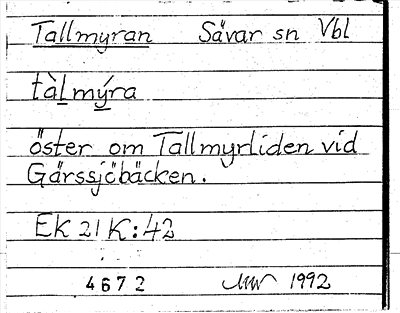 Tallmyran Sävar sn Vbl
tàlmýra
öster om Tallmyrliden vid
Gärssjöbäcken.
EK 21 K:42
4672 1992